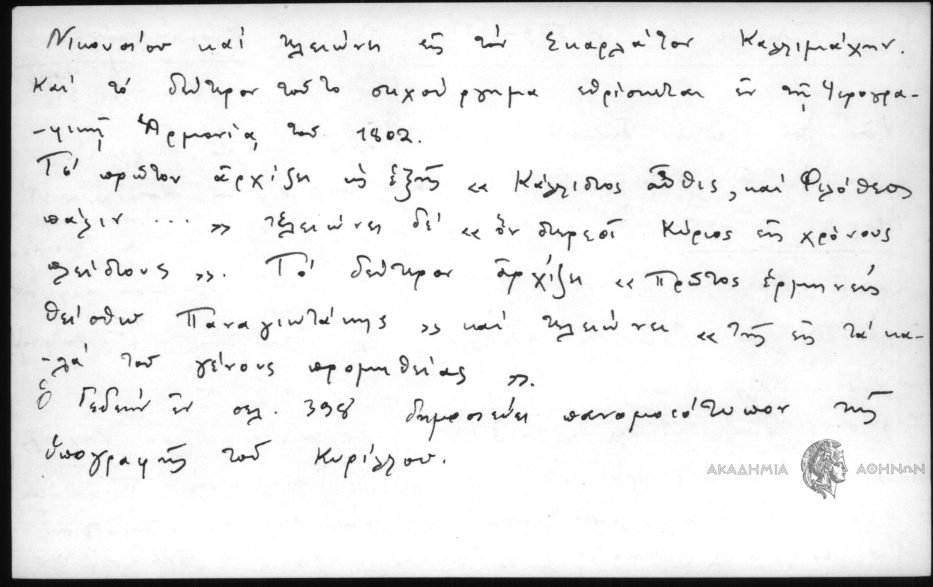 Νικουσίου καί τελειώνει εἰς τόν Σκαρλάτον Καλλιμάχην.
Καί τό δεύτερον τοῦτο στιχούργημα εὑρίσκεται ἐν τῇ Ἱερογρα-
-φικῇ Ἁρμονίᾳ τοῦ 1802.
Τό πρῶτον ἀρχίζει ὡς ἑξῆς « Κάλλιστος αὖθις, καί Φιλόθεος
πάλιν ... » τελειώνει δέ « ὅν τηρεσῖ Κύριος εἰς χρόνους
πλείστους ». Τό δεύτερον ἀρχίζει « Πρῶτος ἑρμηνεύς
θείσθω Παναγιωτάκης » καί τελειώνει « τῆς εἰς τά κα-
-λά τοῦ γένους προμηθείας ».
Ὁ Γεδεών ἐν σελ. 398 δημοσιεύει πανομοιότυπον τῆς
ὑπογραφῆς τοῦ Κυρίλλου.
ΑΚΑΔΗΜΙΑ ΑΘΗΝΩΝ